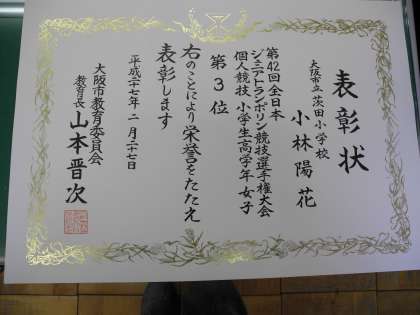 表彰状
大阪市立茨田小学校
小林陽花
第42回全日本
ジュニアトランポリン競技選手権大会
個人競技 小学生高学年女子
第3位
右のことにより栄誉をたたえ
表彰します
平成二十七年二月二十七日
大阪市教育委員会
教育長 山本晋次